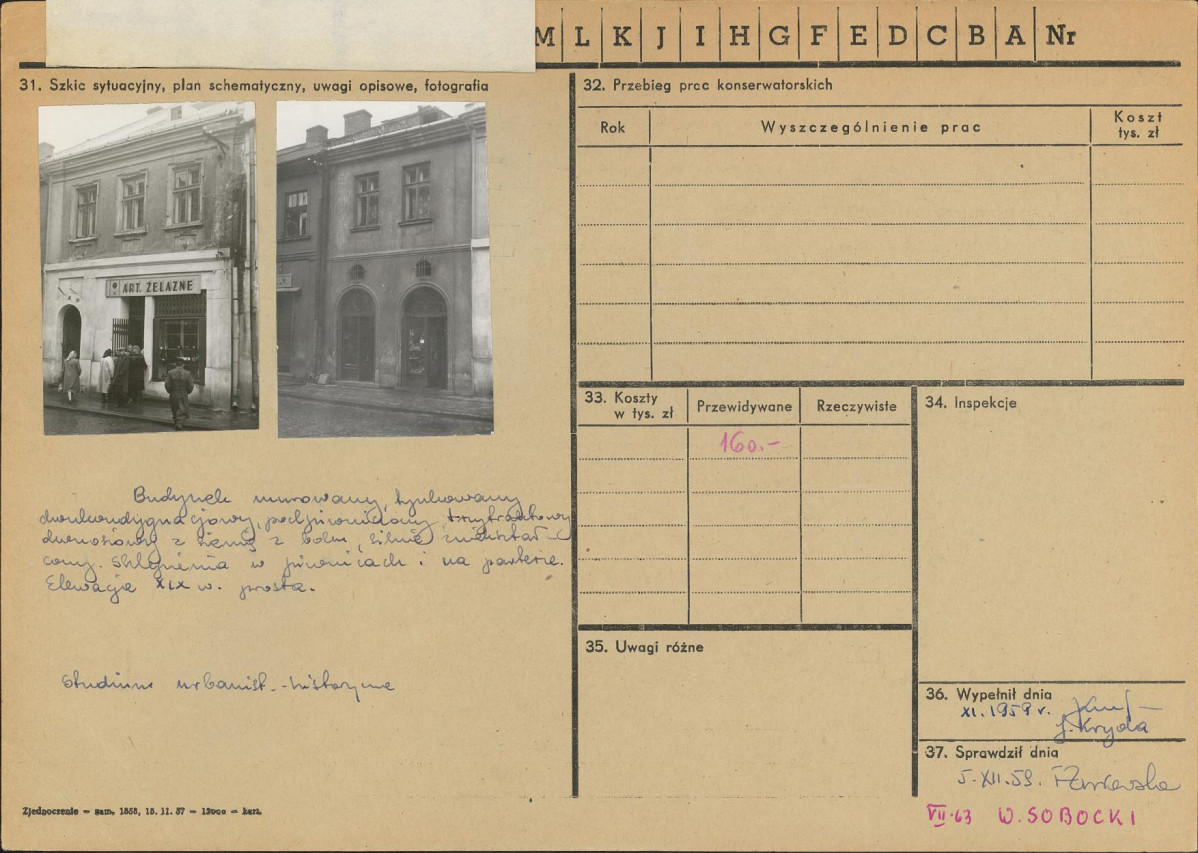 M L K J I H G F E D C B A Nr
31. Szkic sytuacyjny, plan schematyczny, uwagi opisowe, fotografia
ART. ŻELAZNE
Budynek murowany, tynkowany
dwukondygnacjowy, podpiwniczony, trzytraktowy
dwuosiowy z sienią z boku, silnie zniekształ-
cony. Sklepienia w piwnicach i na parterze.
Elewacja XIX w. prosta.
Studium urbanist.-historyczne
Zjednoczenie — sam. 1858, 15. 11. 57 — 12000 — kart.
32. Przebieg prac konserwatorskich
Rok Wyszczególnienie prac Koszt tys. zł
33. Koszty w tys. zł Przewidywane Rzeczywiste
160.-
34. Inspekcje
35. Uwagi różne
36. Wypełnił dnia
XI. 1959 r.
J. Kryda
37. Sprawdził dnia
5. XII. 59.
VII.63 W. SOBOCKI